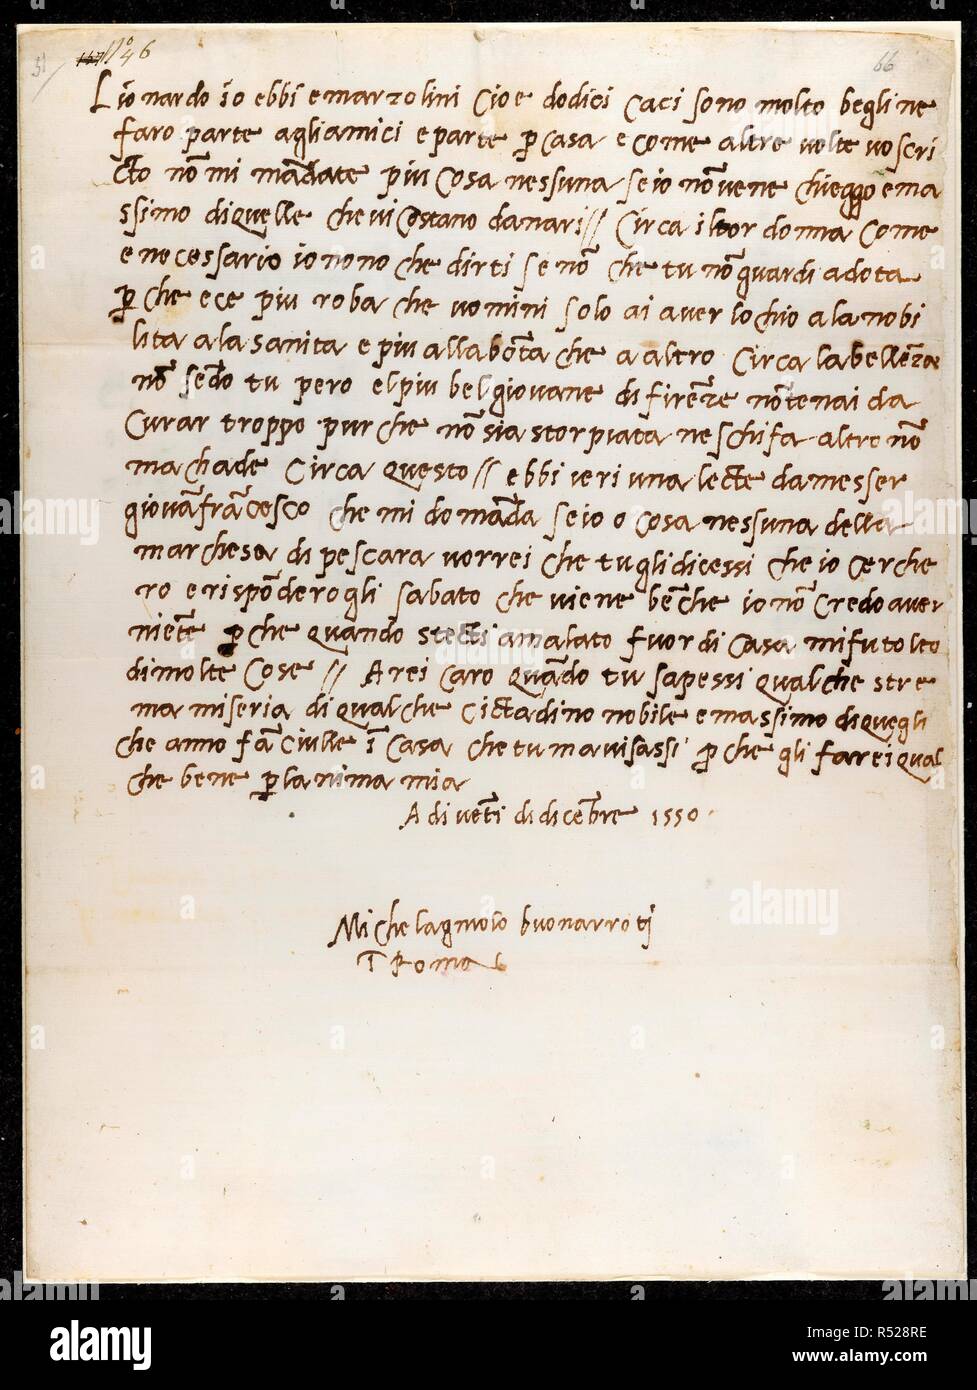 51 157 N° 46 66
Lionardo io ebbi e marzolini cioe dodici caci sono molto begli ne
faro parte agli amici e parte p casa e come altre volte vo scri
cto nō mi mādate piu cosa nessuna se io nō ve ne chieggo e ma
ssimo di quelle che vi costano danari // Circa il tor donna come
e necessario io no no che dirti se nō che tu nō guardi a dota
p che e ce piu roba che uomini solo ai aver lochio a la nobi
lita a la sanita e piu alla bōta che a altro Circa la belleza
nō sēdo tu pero el piu bel giovane di firēze nō te nai da
curar troppo pur che nō sia storpiata ne schifa altro nō
ma chade circa questo // ebbi ieri una lecte da messer
giovāfrācesco che mi domāda se io o cosa nessuna della
marchesa di pescara vorrei che tu gli dicessi che io cerche
ro e rispōderogli sabato che viene bēche io nō credo aver
niēte p che quando stecti amalato fuor di casa mi fu tolto
di molte cose // Arei caro quādo tu sapessi qualche stre
ma miseria di qualche cictadino nobile e massimo di quegli
che anno fāciulle ī casa che tu mavisassi p che gli farei qual
che bene p lanima mia
A di vēti di dicēbre 1550
Michelagniolo buonarroti
ī Roma
alamy
Image ID: R528RE
www.alamy.com